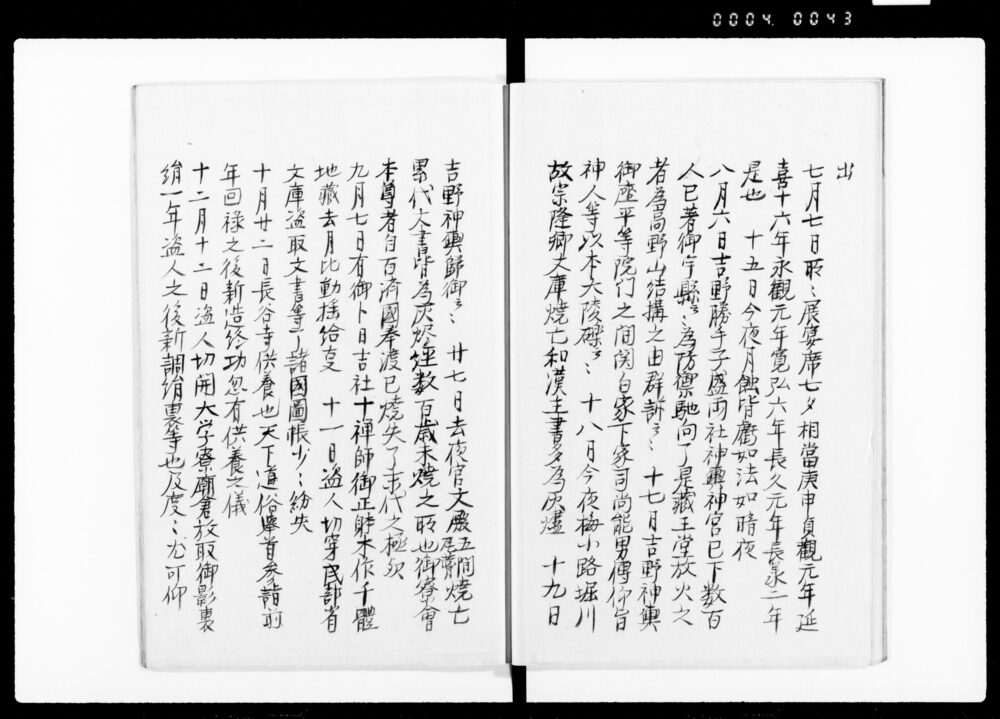 0004 0043
出
七月七日所〻展宴席七夕相當庚申貞觀元年延
喜十六年永觀元年寛弘六年長久元年長承二年
是也 十五日今夜月蝕皆虧如法如暗夜
八月六日吉野勝手子盛両社神輿神官已下数百
人已著御宇縣云〻為防禦馳向了是藏王堂放火之
者為高野山結構之由群訴云〻 十七日吉野神輿
御座平等院门之間関白家下家司尚能男傳仰旨
神人等以本大陵礫云〻 十八月今夜梅小路堀川
故宗隆卿文庫焼亡和漢主書多為灰燼 十九日
吉野神輿歸御云〻 廿七日去夜官文殿五間焼亡
累代大書皆為灰燼經数百歳未焼之所也御寮會
本尊者自百済國奉渡已焼失了末代之極欤
九月七日有御卜日吉社十禅師御正躰木作千體
地藏去月比動揺給支 十一日盗人切穿民部省
文庫盗取文書等了諸國圖帳少〻紛失
十月廿二日長谷寺供養也天下道俗挙首参詣前
年回禄之後新造終功忽有供養之儀
十二月十二日盗人切開大学寮廟倉放取御影裏
絹一年盗人之後新調絹裏等也及度〻尤可仰